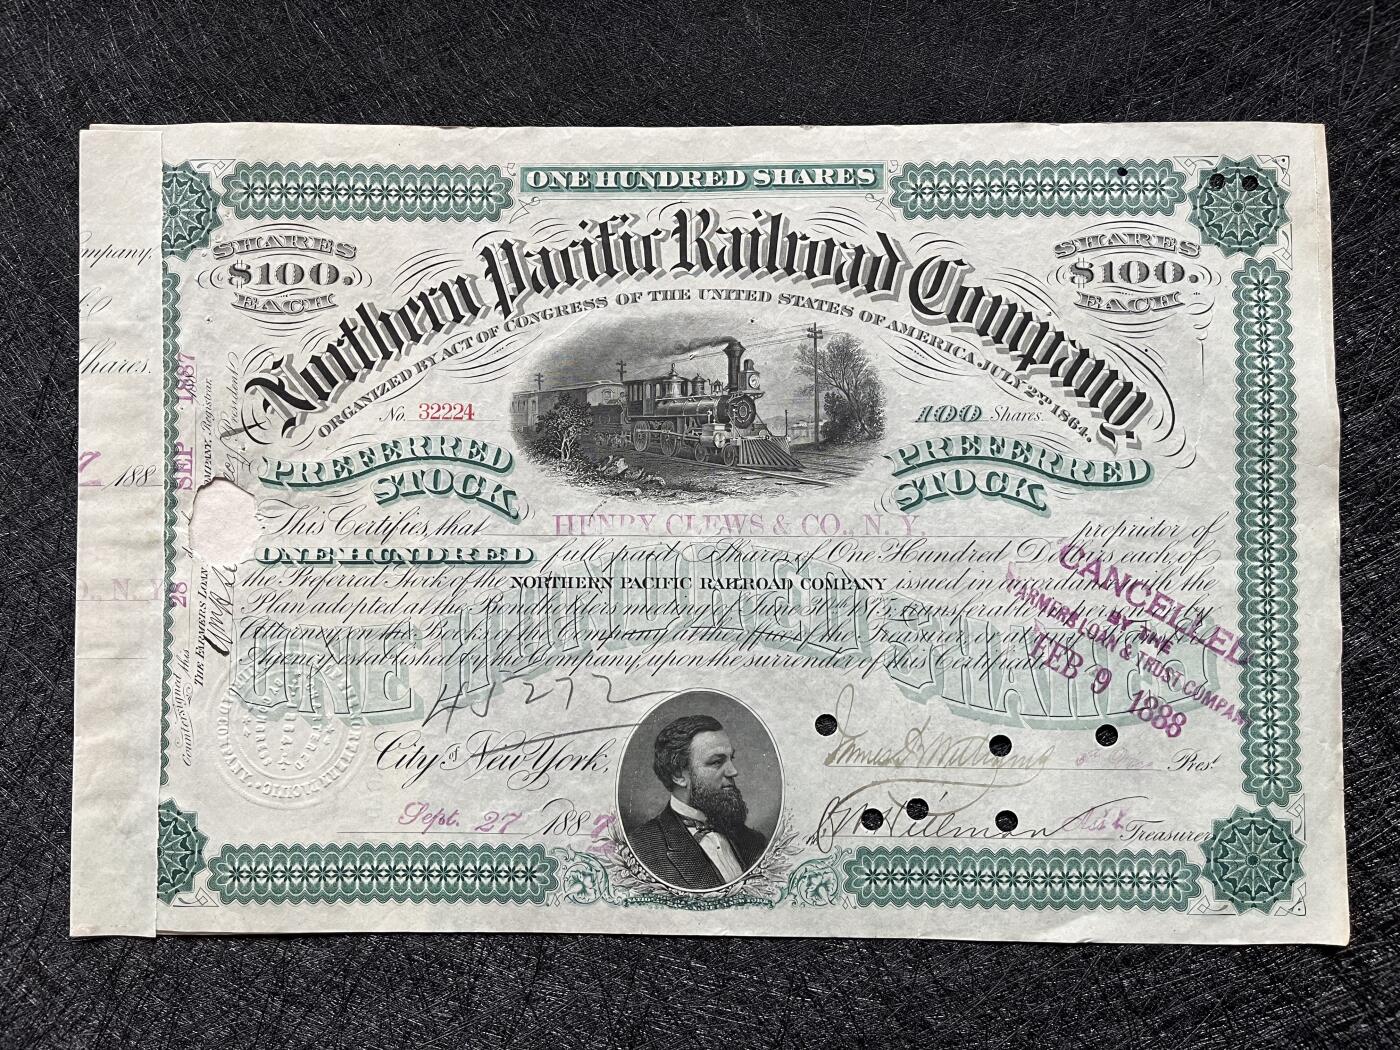 ONE HUNDRED SHARES
SHARES
$100.
EACH
SHARES
$100.
EACH
Northern Pacific Railroad Company
ORGANIZED BY ACT OF CONGRESS OF THE UNITED STATES OF AMERICA, JULY 2ND 1864.
No. 32224
100 Shares.
PREFERRED STOCK
PREFERRED STOCK
This Certifies, that HENRY CLEWS & CO., N. Y. proprietor of
ONE HUNDRED full paid Shares of One Hundred Dollars each, of
the Preferred Stock of the NORTHERN PACIFIC RAILROAD COMPANY issued in accordance with the
Plan adopted at the Bondholders meeting of June 30th 1875, transferable in person or by
Attorney on the Books of the Company at the office of the Treasurer, or at any
Agency established by the Company, upon the surrender of this Certificate.
ONE HUNDRED SHARES
CANCELLED
BY THE
FARMERS LOAN & TRUST COMPANY
FEB 9 1888
45272
City of New York,
Sept. 27 1887
Prest.
Asst. Treasurer
Countersigned this 28 SEP 1887
THE FARMERS LOAN
COMPANY, Registrar.
President
ompany.
hares.
7 188
O., N. Y